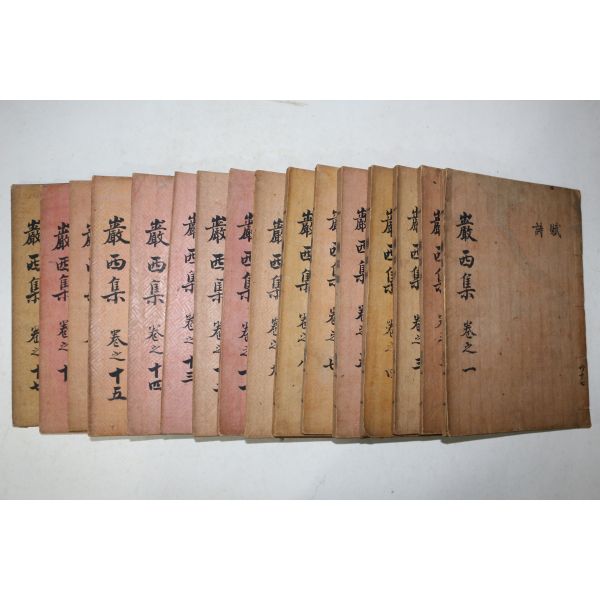 賦
詩
巖西集 卷之一
巖西集 卷之
巖西集 卷之三
巖西集 卷之四
巖西集 卷之五
巖西集 卷之七
巖西集 卷之八
巖西集 卷之九
巖西集 卷之十一
巖西集 卷之十二
巖西集 卷之十三
巖西集 卷之十四
巖西集 卷之十五
巖西集 卷之十
巖西集 卷之十七